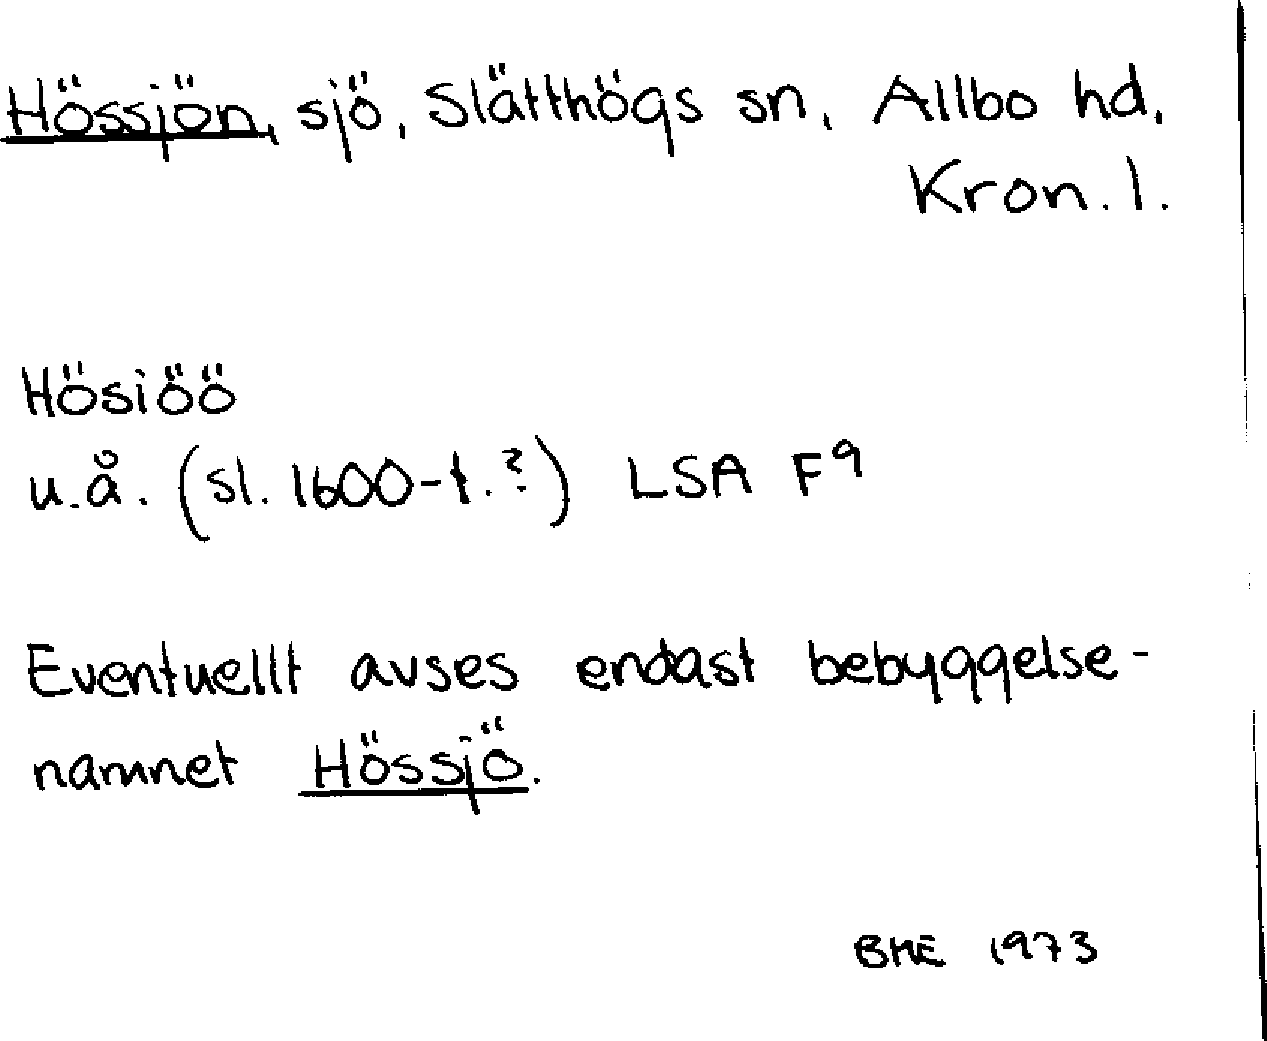 Hössjön, sjö, Slätthögs sn, Allbo hd,
Kron. l.
Hösiöö
u.å. (sl. 1600-t.?) LSA F9
Eventuellt avses endast bebyggelse-
namnet Hössjö.
BME 1973